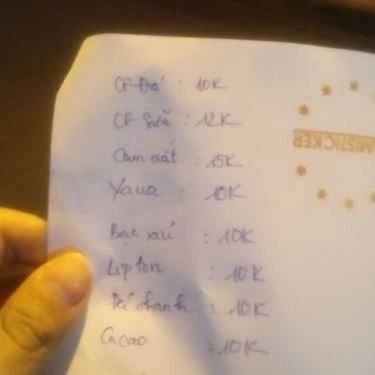 CF Đá : 10K
CF Sữa : 12K
Cam vắt : 15K
Yaua : 10K
Bạc xỉu : 10K
Lipton : 10K
chanh : 10K
Cacao : 10K
STICKER